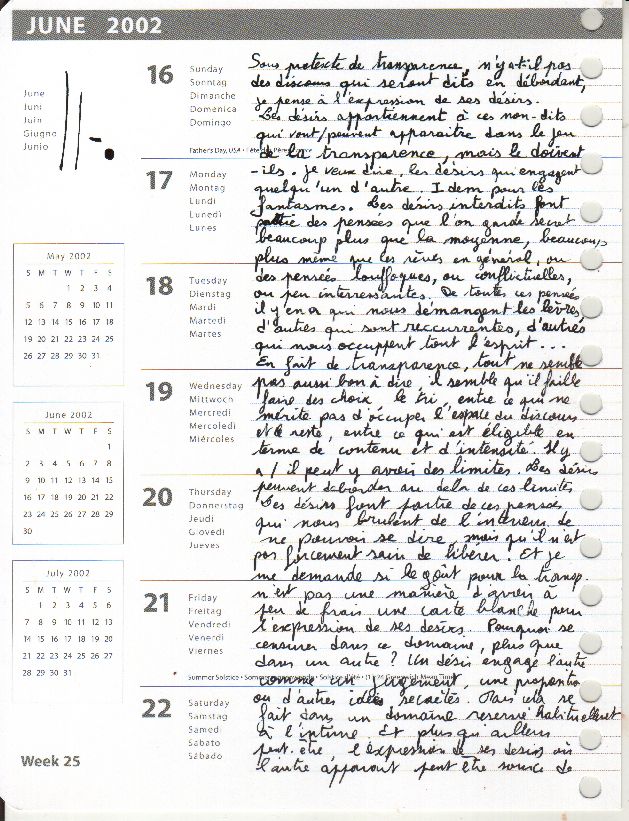 JUNE 2002
June
Juni
Juin
Giugno
Junio
11-.
May 2002
S M T W T F S
1 2 3 4
5 6 7 8 9 10 11
12 13 14 15 16 17 18
19 20 21 22 23 24 25
26 27 28 29 30 31
June 2002
S M T W T F S
1
2 3 4 5 6 7 8
9 10 11 12 13 14 15
16 17 18 19 20 21 22
23 24 25 26 27 28 29
30
July 2002
S M T W T F S
1 2 3 4 5 6
7 8 9 10 11 12 13
14 15 16 17 18 19 20
21 22 23 24 25 26 27
28 29 30 31
Week 25
16
Sunday
Sonntag
Dimanche
Domenica
Domingo
Father's Day, USA
17
Monday
Montag
Lundi
Lunedì
Lunes
18
Tuesday
Dienstag
Mardi
Martedì
Martes
19
Wednesday
Mittwoch
Mercredi
Mercoledì
Miércoles
20
Thursday
Donnerstag
Jeudi
Giovedì
Jueves
21
Friday
Freitag
Vendredi
Venerdì
Viernes
Summer Solstice
22
Saturday
Samstag
Samedi
Sabato
Sábado
Sous pretexte de transparence, n'y a-t-il pas
des discours qui seront dits en débordant,
je pense à l'expression de ses désirs.
Les désirs appartiennent à ces non-dits
qui vont/peuvent apparaitre dans le jeu
de la transparence, mais le doivent
-ils. je veux dire, les désirs qui engagent
quelqu'un d'autre. Idem pour les
fantasmes. Les désirs interdits font
partie des pensées que l'on garde secret
beaucoup plus que la moyenne, beaucoup
plus même que les rêves en général, ou
des pensées louffoques, ou conflictuelles,
ou peu interressantes. De toutes ces pensées
il y en a qui nous démangent les lèvres
d'autres qui sont reccurrentes, d'autres
qui nous occuppent tout l'esprit...
En fait de transparence, tout ne semble
pas aussi bon à dire, il semble qu'il faille
faire des choix, le tri, entre ce qui ne
mérite pas d'occuper l'espace du discours
et le reste, entre ce qui est éligible en
terme de contenu et d'intensité. Il y
a/il peut y avoir des limites. Les désirs
peuvent déborder au dela de ces limites
Les désirs font partie de ces pensées
qui nous brulent de l'interieur de
ne pouvoir se dire, mais qu'il n'est
pas forcement sain de libérer. Et je
me demande si le goût pour la transp.
n'est pas une manière d'avoir à
peu de frais une carte blanche pour
l'expression de ses desirs. Pourquoi se
censurer dans ce domaine, plus que
dans un autre? Un désir engage l'autre
comme un jugement, une proportio
ou d'autres idées secrètes. Mais cela se
fait dans un domaine reservé habituellement
à l'intime. Et plus qu'ailleurs
peut-être l'expression de ses desirs où
l'autre apparait peut être source de